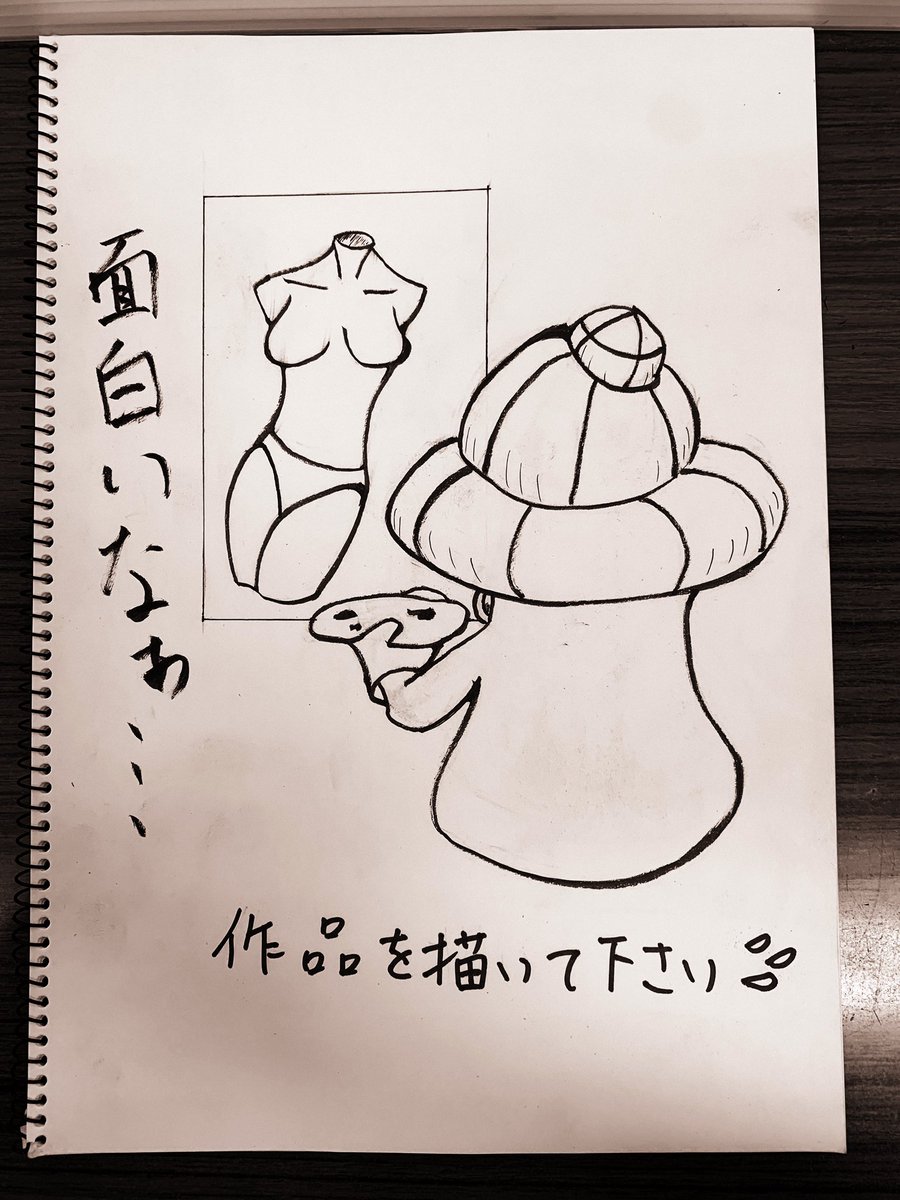 面白いなぁ...
作品を描いて下さい